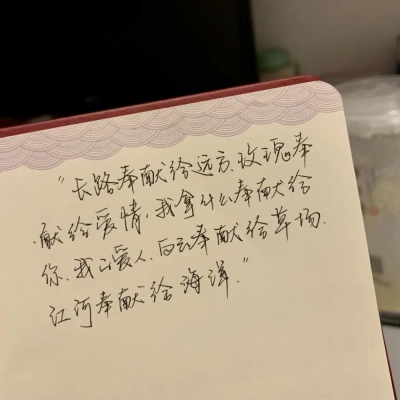 “长路奉献给远方.玫瑰奉
献给爱情,我拿什么奉献给
你.我的爱人.白云奉献给草场.
江河奉献给海洋.”